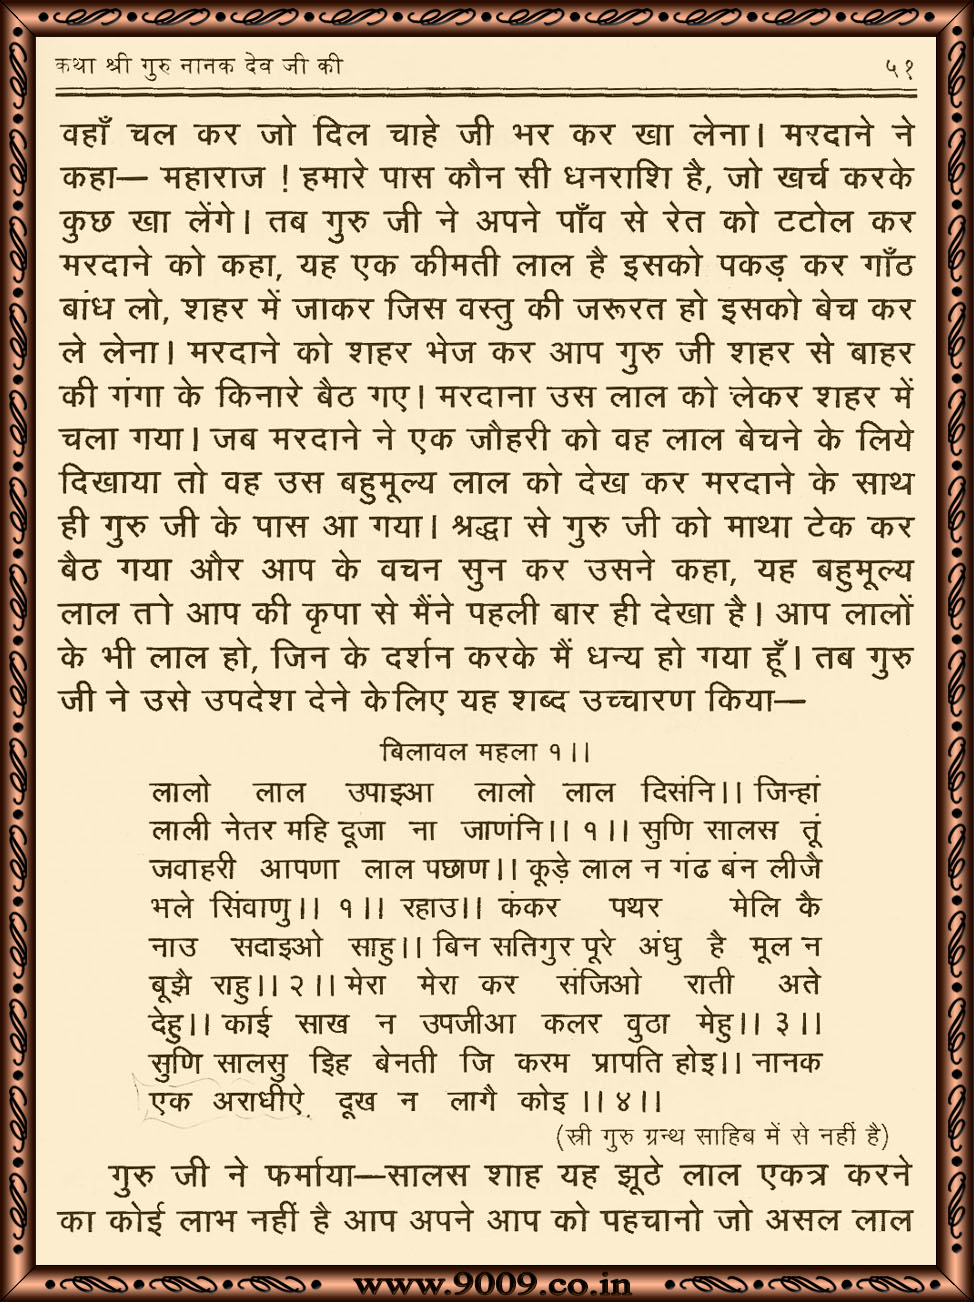 कथा श्री गुरु नानक देव जी की ५१
वहाँ चल कर जो दिल चाहे जी भर कर खा लेना। मरदाने ने
कहा— महाराज ! हमारे पास कौन सी धनराशि है, जो खर्च करके
कुछ खा लेंगे। तब गुरु जी ने अपने पाँव से रेत को टटोल कर
मरदाने को कहा, यह एक कीमती लाल है इसको पकड़ कर गाँठ
बांध लो, शहर में जाकर जिस वस्तु की जरूरत हो इसको बेच कर
ले लेना। मरदाने को शहर भेज कर आप गुरु जी शहर से बाहर
की गंगा के किनारे बैठ गए। मरदाना उस लाल को लेकर शहर में
चला गया। जब मरदाने ने एक जौहरी को वह लाल बेचने के लिये
दिखाया तो वह उस बहुमूल्य लाल को देख कर मरदाने के साथ
ही गुरु जी के पास आ गया। श्रद्धा से गुरु जी को माथा टेक कर
बैठ गया और आप के वचन सुन कर उसने कहा, यह बहुमूल्य
लाल तो आप की कृपा से मैंने पहली बार ही देखा है। आप लालों
के भी लाल हो, जिन के दर्शन करके मैं धन्य हो गया हूँ। तब गुरु
जी ने उसे उपदेश देने केलिए यह शब्द उच्चारण किया—
बिलावल महला १।।
लालो लाल उपाइआ लालो लाल दिसंनि।। जिन्हां
लाली नेतर महि दूजा ना जाणंनि।। १।। सुणि सालस तूं
जवाहरी आपणा लाल पछाण।। कूड़े लाल न गंढ बंन लीजै
भले सिंवाणु।। १।। रहाउ।। कंकर पथर मेलि कै
नाउ सदाइओ साहु।। बिन सतिगुर पूरे अंधु है मूल न
बूझै राहु।। २।। मेरा मेरा कर संजिओ राती अते
देहु।। काई साख न उपजीआ कलर वुठा मेहु।। ३।।
सुणि सालसु इिह बेनती जि करम प्रापति होइ।। नानक
एक अराधीऐ दूख न लागै कोइ ।। ४।।
(स्री गुरु ग्रन्थ साहिब में से नहीं है)
गुरु जी ने फर्माया—सालस शाह यह झूठे लाल एकत्र करने
का कोई लाभ नहीं है आप अपने आप को पहचानो जो असल लाल
www.9009.co.in